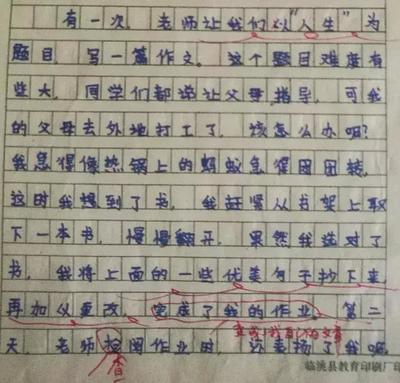 有一次，老师让我们以“人生”为
题目，写一篇作文。这个题目难度有
些大，同学们都说让父母指导，可我
的父母去外地打工了，该怎么办呢？
我急得像热锅上的蚂蚁急得团团转，
这时我想到了书，我赶紧从书架上取
下一本书，慢慢翻开，果然我选对了
书，我将上面的一些优美句子抄下来，
再加以更改，完成了我的作业。第二
变成了我自己的文章
天，老师检阅作业时，还表扬了我呢
查
临洮县教育印刷厂印